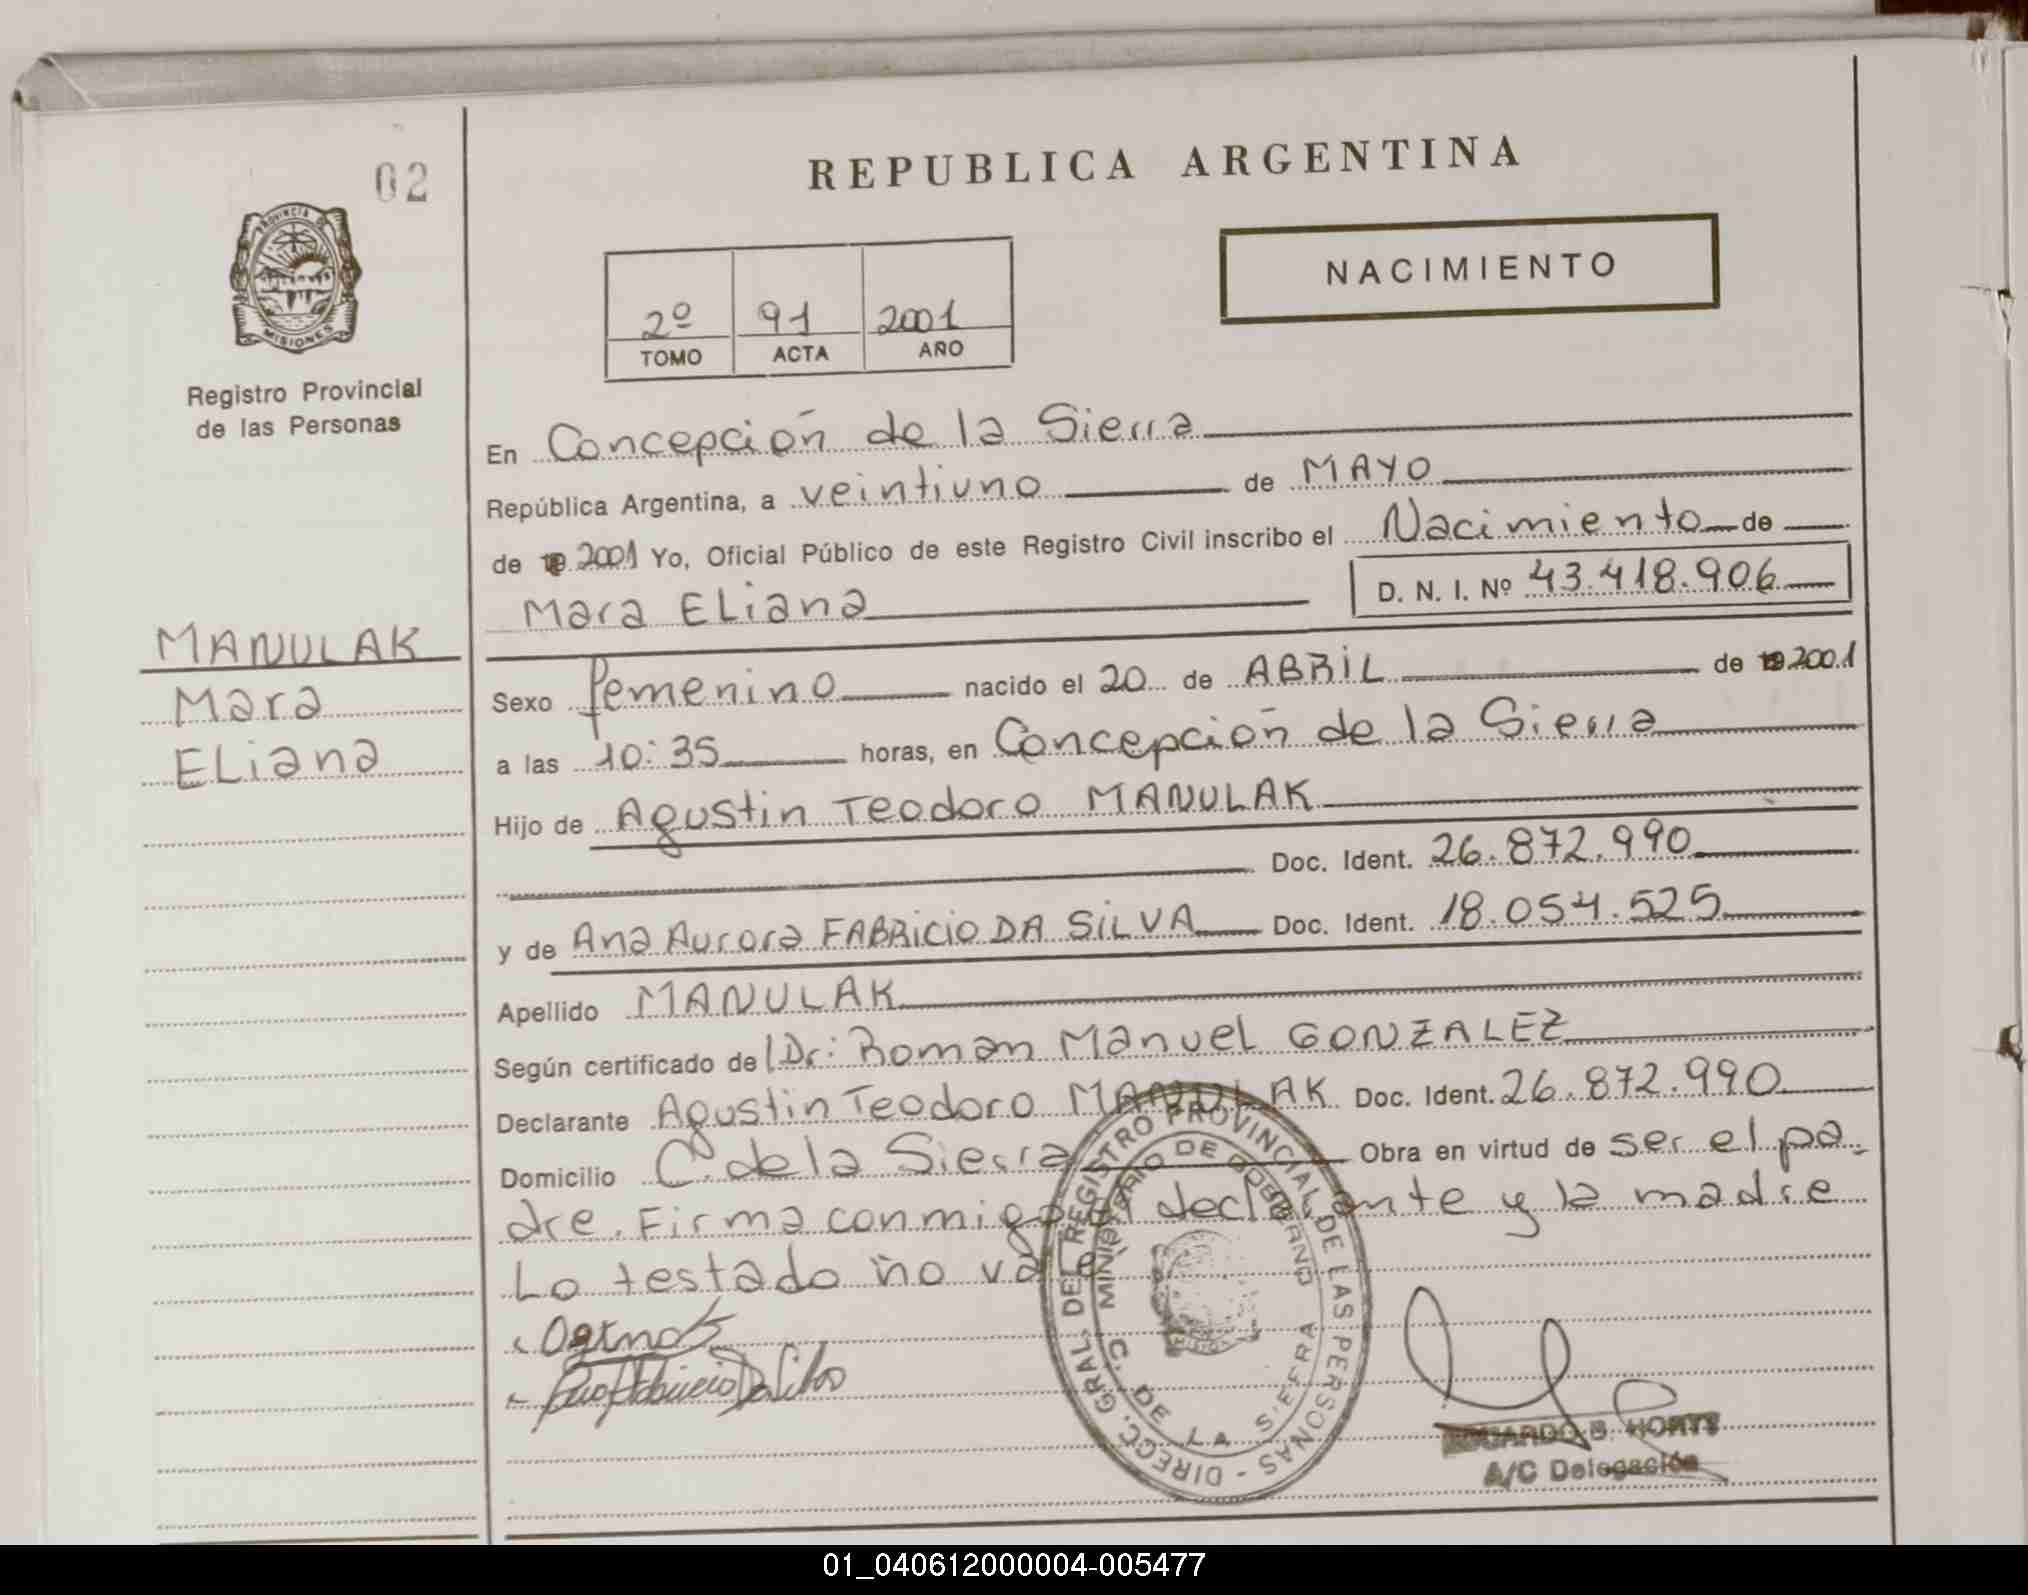 02
REPUBLICA ARGENTINA
PROVINCIA DE
MISIONES
Registro Provincial
de las Personas
2º 91 2001
TOMO ACTA AÑO
NACIMIENTO
En Concepción de la Sierra
República Argentina, a veintiuno de MAYO
de 19 2001 Yo, Oficial Público de este Registro Civil inscribo el Nacimiento de
Mara ELiana D. N. I. Nº 43.418.906
MANULAK
Mara
ELiana
Sexo femenino nacido el 20 de ABRIL de 19 2001
a las 10:35 horas, en Concepción de la Sierra
Hijo de Agustin Teodoro MANULAK
Doc. Ident. 26.872.990
y de Ana Aurora FABRICIO DA SILVA Doc. Ident. 18.054.525
Apellido MANULAK
Según certificado de Dr: Roman Manuel GONZALEZ
Declarante Agustin Teodoro MANULAK Doc. Ident. 26.872.990
Domicilio C. de la Sierra Obra en virtud de ser el pa-
dre. Firma conmigo el declarante y la madre
Lo testado no vale
DIRECC. GRAL. DEL REGISTRO PROVINCIAL DE LAS PERSONAS -
MINISTERIO DE GOBIERNO
C. DE LA SIERRA
EDUARDO B. HORTT
A/C Delegación
01_040612000004-005477